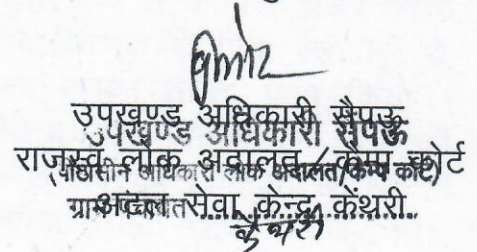 उपखण्ड अधिकारी सैपऊ
उपखण्ड अधिकारी सैपऊ
राजस्व लोक अदालत/कैम्प कोर्ट
(पीठासीन अधिकारी लोक अदालत/कैम्प कोर्ट)
अटल सेवा केन्द्र केंथरी
ग्राम पंचायत
कैंथरी